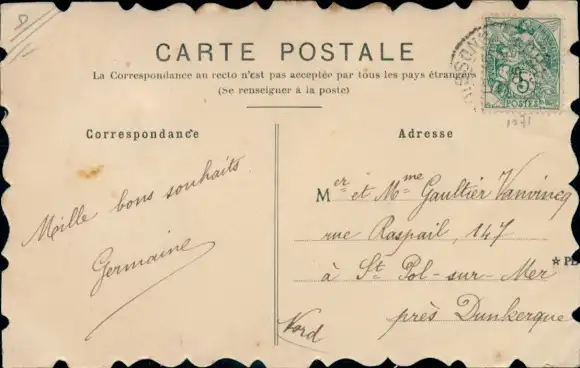 CARTE POSTALE
La Correspondance au recto n'est pas acceptée par tous les pays étrangers
(Se renseigner à la poste)
5
POSTES
1971
Correspondance
Mille bons souhaits
Germaine
Adresse
Mer et Mme Gaultier Vanvincq
rue Raspail, 147
à St Pol-sur-Mer
près Dunkerque
Nord